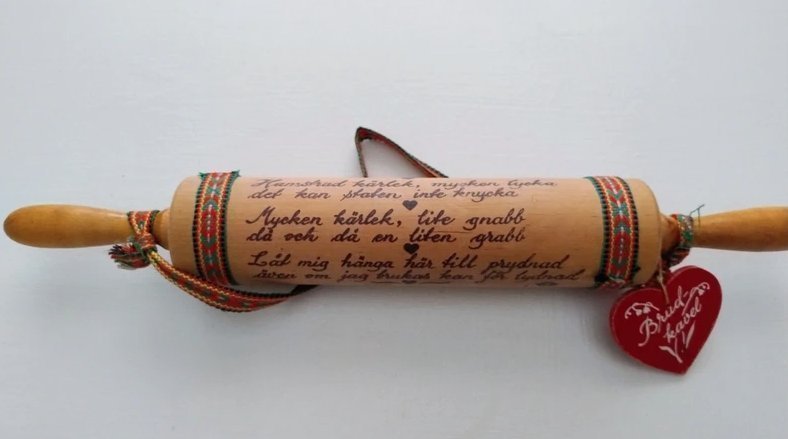 Hamstrad kärlek, mycken lycka
det kan staten inte knycka
Mycken kärlek, lite gnabb
då och då en liten grabb
Låt mig hänga här till prydnad
även om jag brukas kan för lydnad
Brud-
kavel